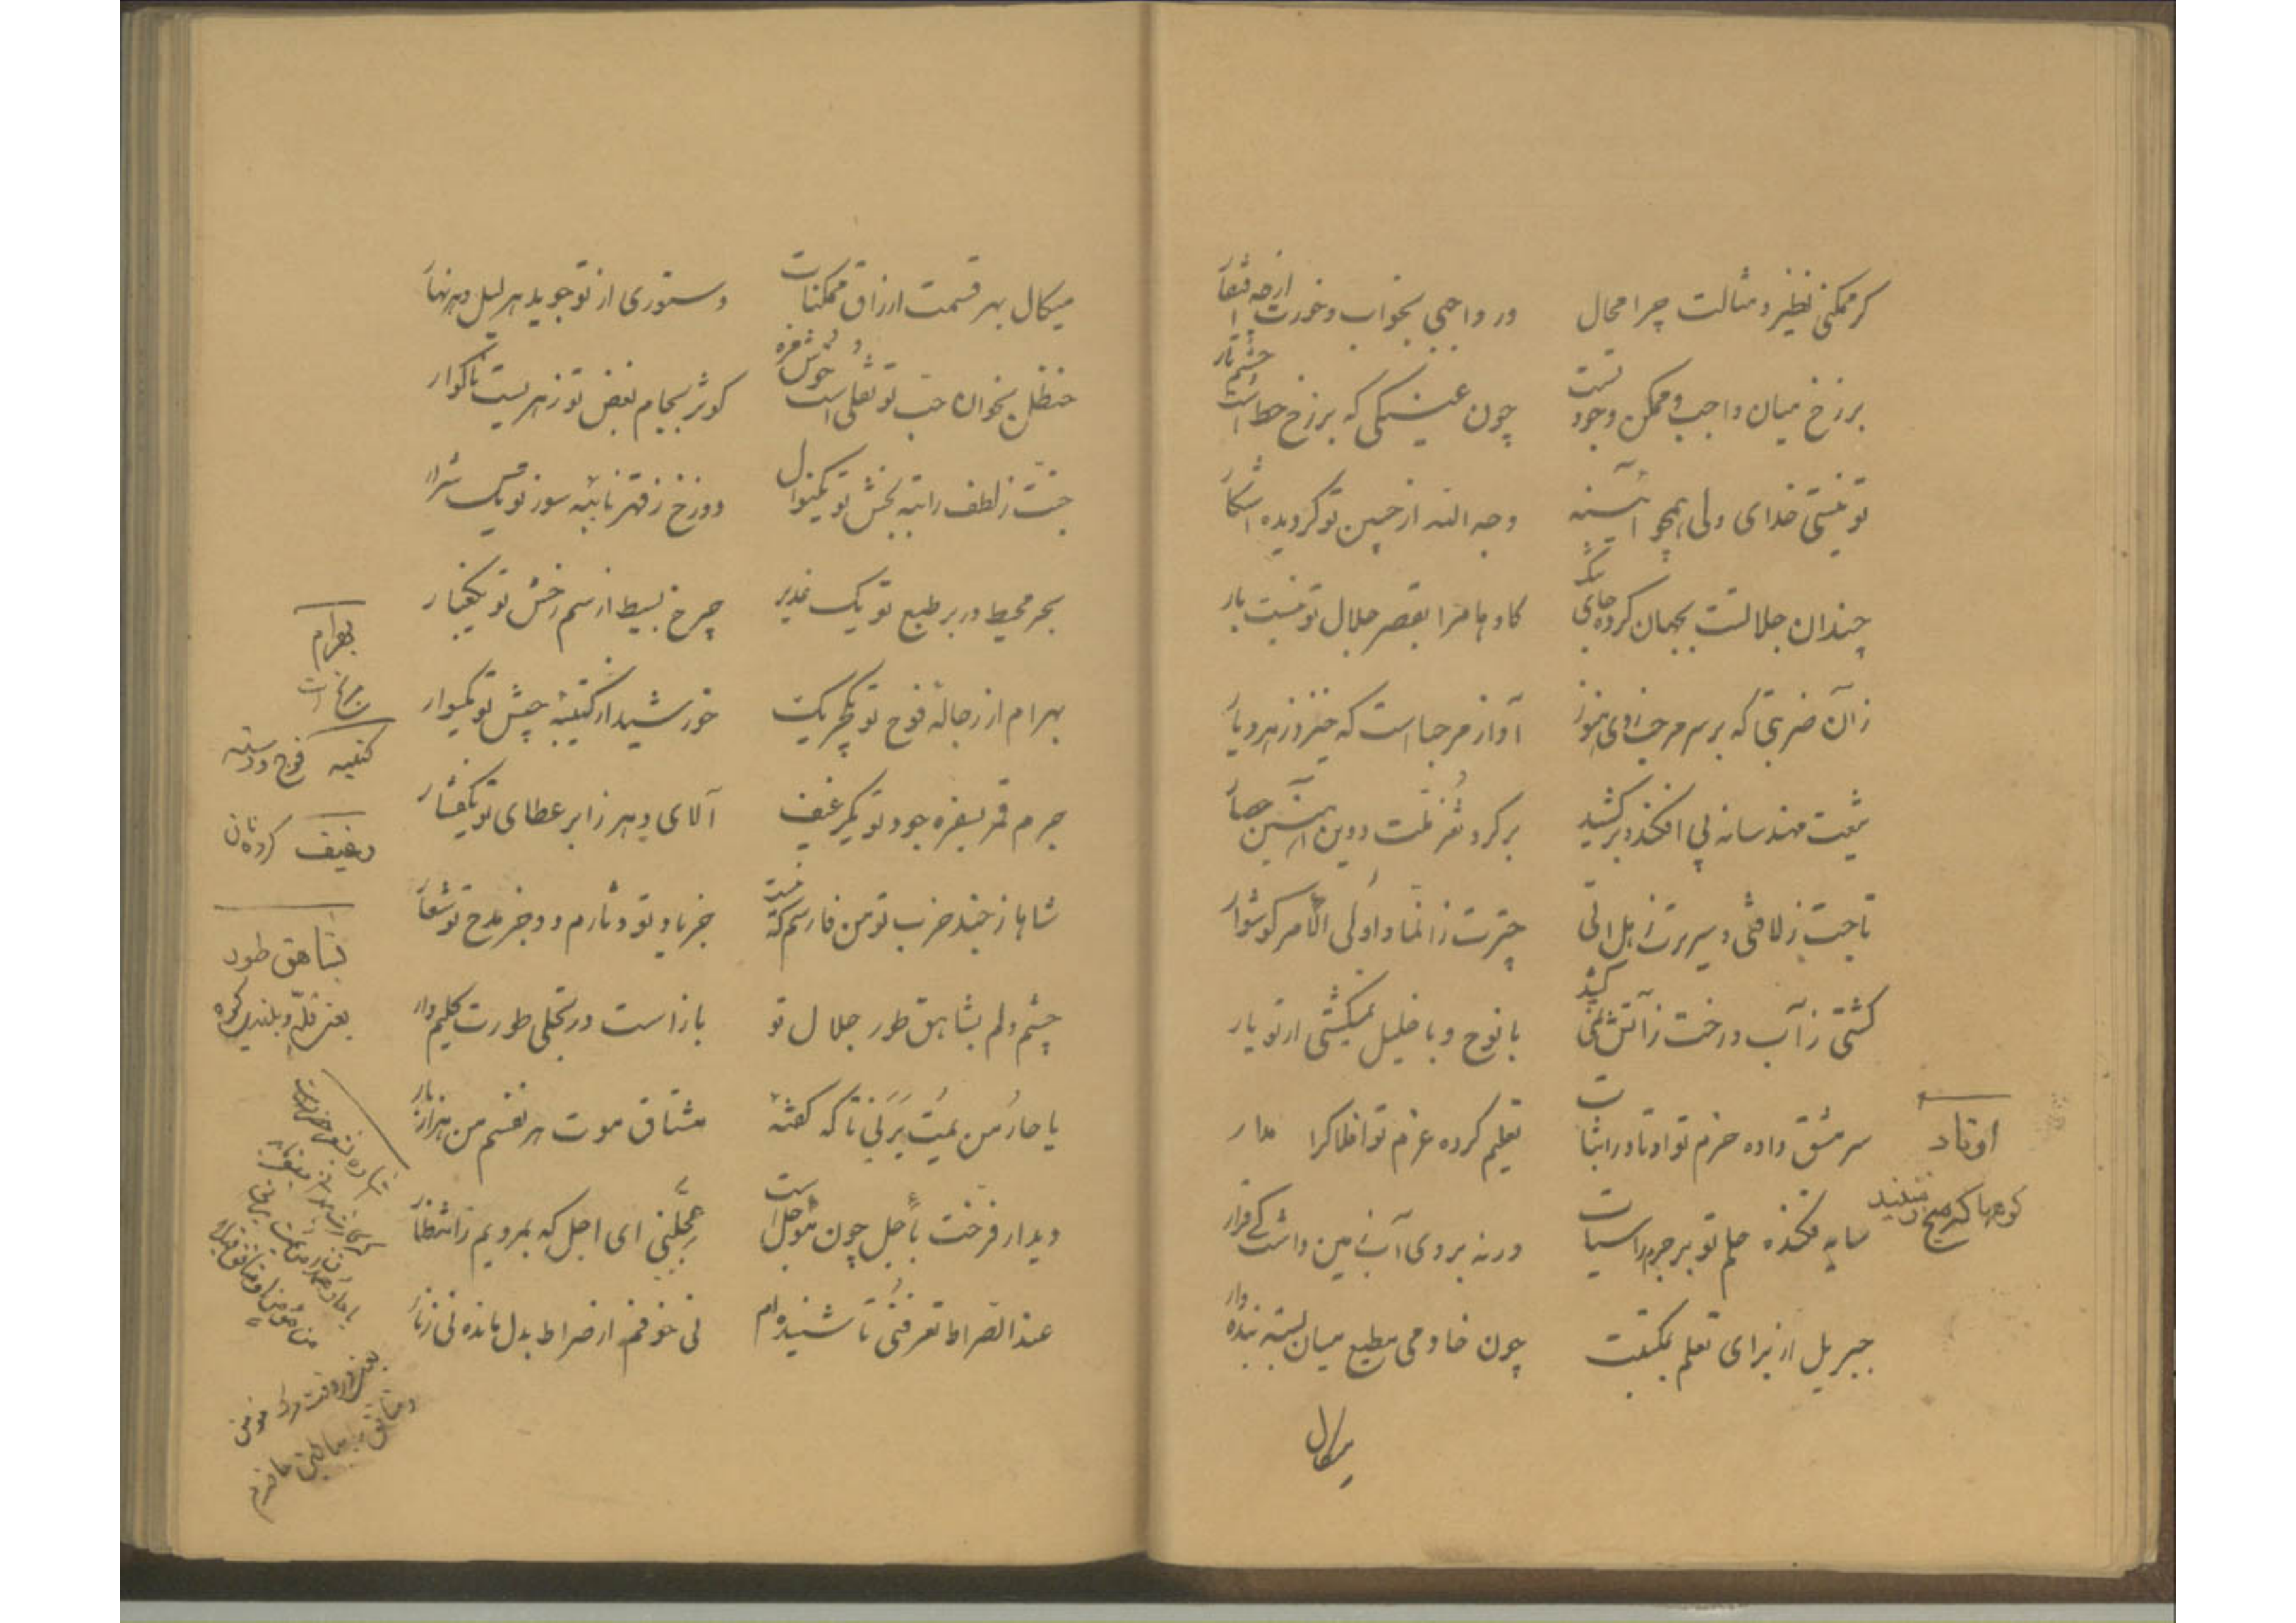 گر ممکنی نظیر و مثالت چرا محال
ور واجبی بخواب و خورت از چه افتقار
برزخ میان واجب و ممکن وجود تست
چون عینکی که برزخ خط است چشم تار
تو نیستی خدای ولی همچو آینه
وجه الله از جبین تو گردیده آشکار
چندان جلالتست بجهان کرده جای تنگ
کاوهام را بقصر جلال تو نیست بار
زآن ضربتی که بر سر مرحب زدی هنوز
آواز مرحباست که خیزد ز هر دیار
تیغت مهندسانه پی افکند و بر کشید
بر گرد ثغر ملت و دین آهنین حصار
تاجت ز لافتی و سریرت ز هل اتی
چترت ز انما و اولی الامر گوشوار
کشتی ز آب و رخت ز آتش نمی کشید
با نوح و با خلیل نمیگشتی ار تو یار
سرمشق داده حزم تو اوتاد را ثبات
تعلیم کرده عزم تو افلاک را مدار
سایه فکنده حلم تو بر جرم راسیات
ورنه بروی آب زمین داشت کی قرار
جبریل از برای تعلم بمکتبت
چون خادمی مطیع میان بسته بنده وار
اوتاد
کوهها که میخ زمینند
میکال
میکال بهر قسمت ارزاق ممکنات
دستوری از تو جوید هر لیل و هر نهار
حنظل بخوان حب تو نقلی است خوش مزه
کوثر بجام بغض تو زهریست ناگوار
جنت ز لطف راتبه بخش تو یک نوال
دوزخ ز قهر نائبه سوز تو یک شرار
بحر محیط در بر طبع تو یک غدیر
چرخ بسیط از سم رخش تو یک غبار
بهرام از رجاله فوج تو یک چریک
خورشید از کتیبه جیش تو یک سوار
جرم قمر بسفره جود تو یک رغیف
آلای دهر ز ابر عطای تو یک قطار
شاها ز جند حزب تو من فارسم که نیست
جز یاد تو دثارم و جز مدح تو شعار
چشم دلم بشاهق طور جلال تو
باز است در تجلی طورت کلیم وار
یا حار من یمت یرنی تا که گفته
مشتاق موت هر نفسم من هزار بار
دیدار فرخت باجل چون مؤجل است
عجلنی ای اجل که بمردیم ز انتظار
عند الصراط تعرفنی تا شنیده ام
نی خوفم از صراط بدل مانده نی ز نار
بهرام
مریخ است
کتیبه فوج و دسته
رغیف گرده نان
بشاهق طور
یعنی قله و بلندی کوه
یعنی در وقت مرگ مؤمن